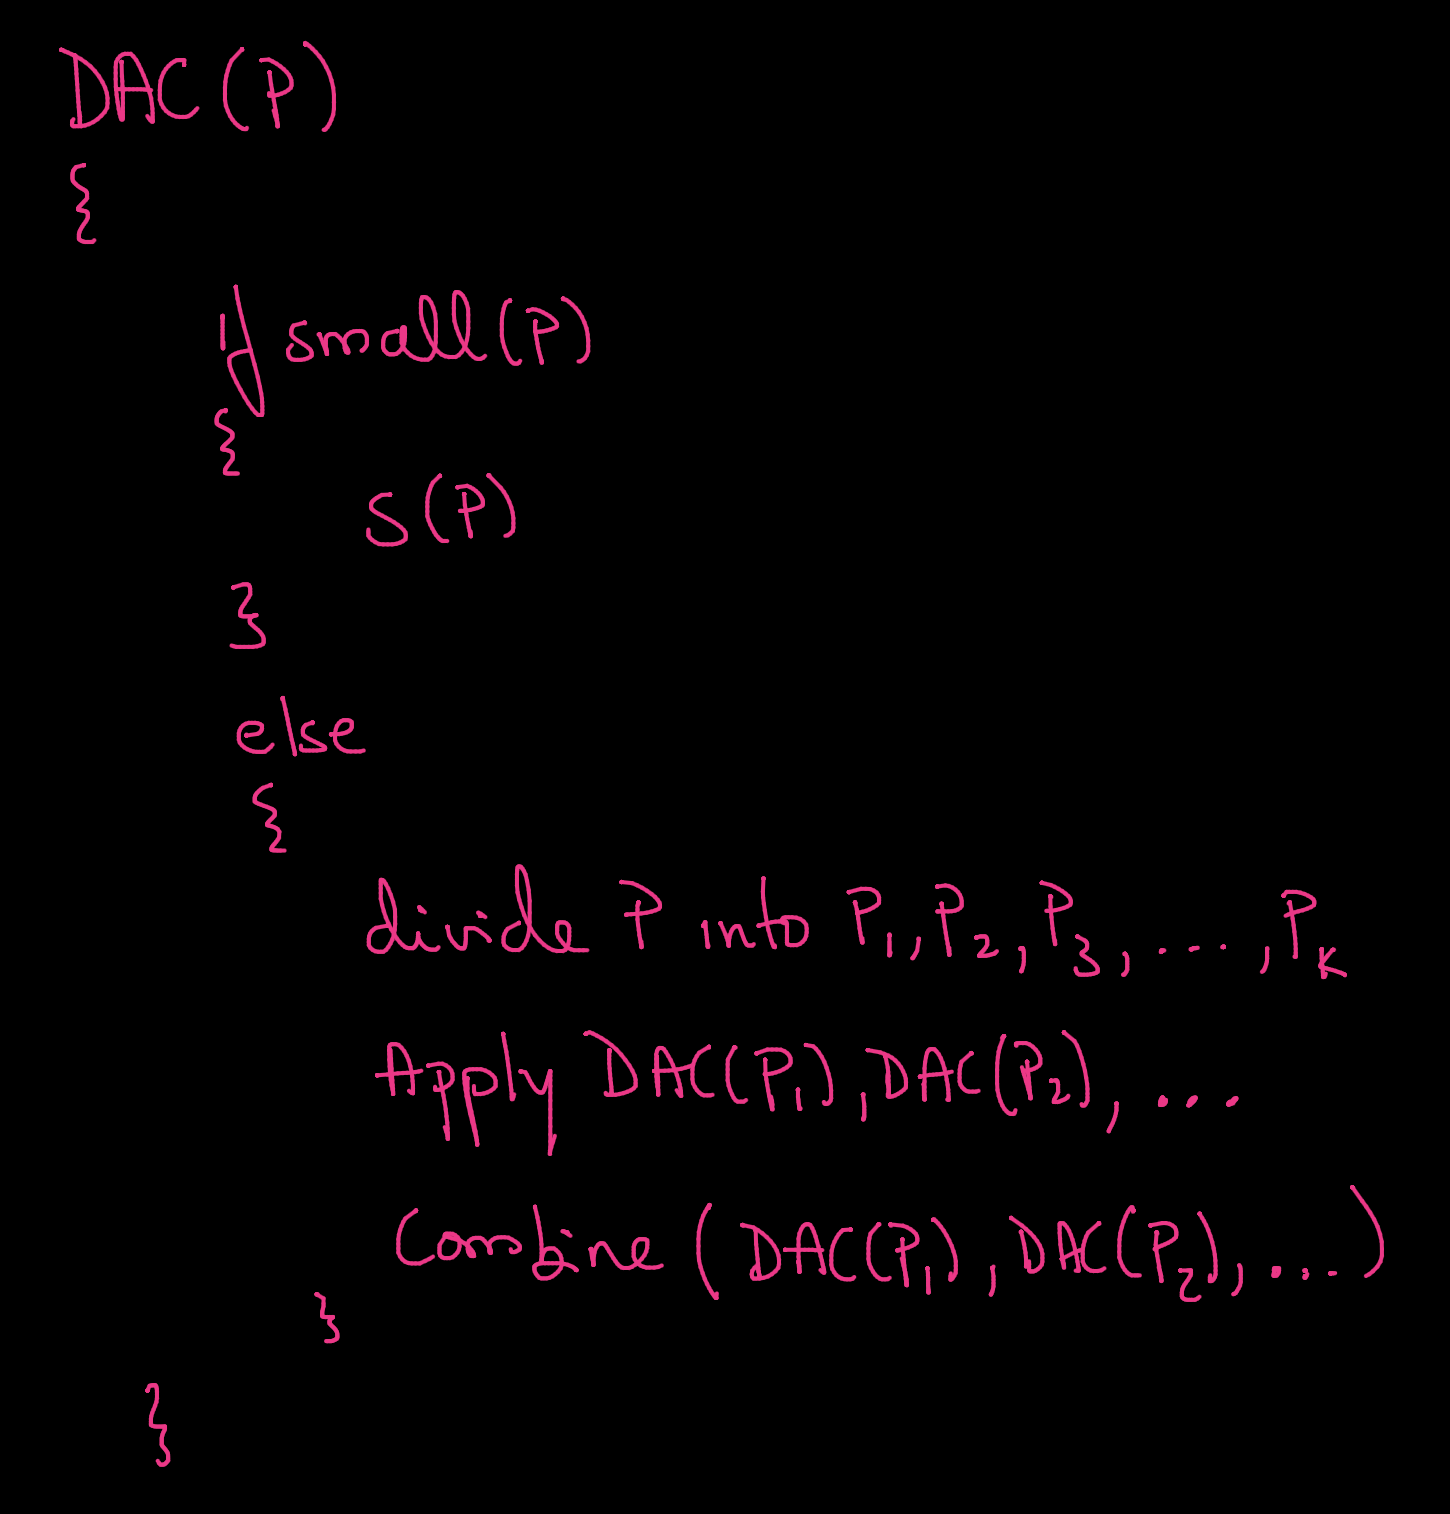 DAC(P)
{
if small(P)
{
S(P)
}
else
{
divide P into P₁, P₂, P₃, ..., Pₖ
Apply DAC(P₁), DAC(P₂), ...
Combine (DAC(P₁), DAC(P₂), ...)
}
}